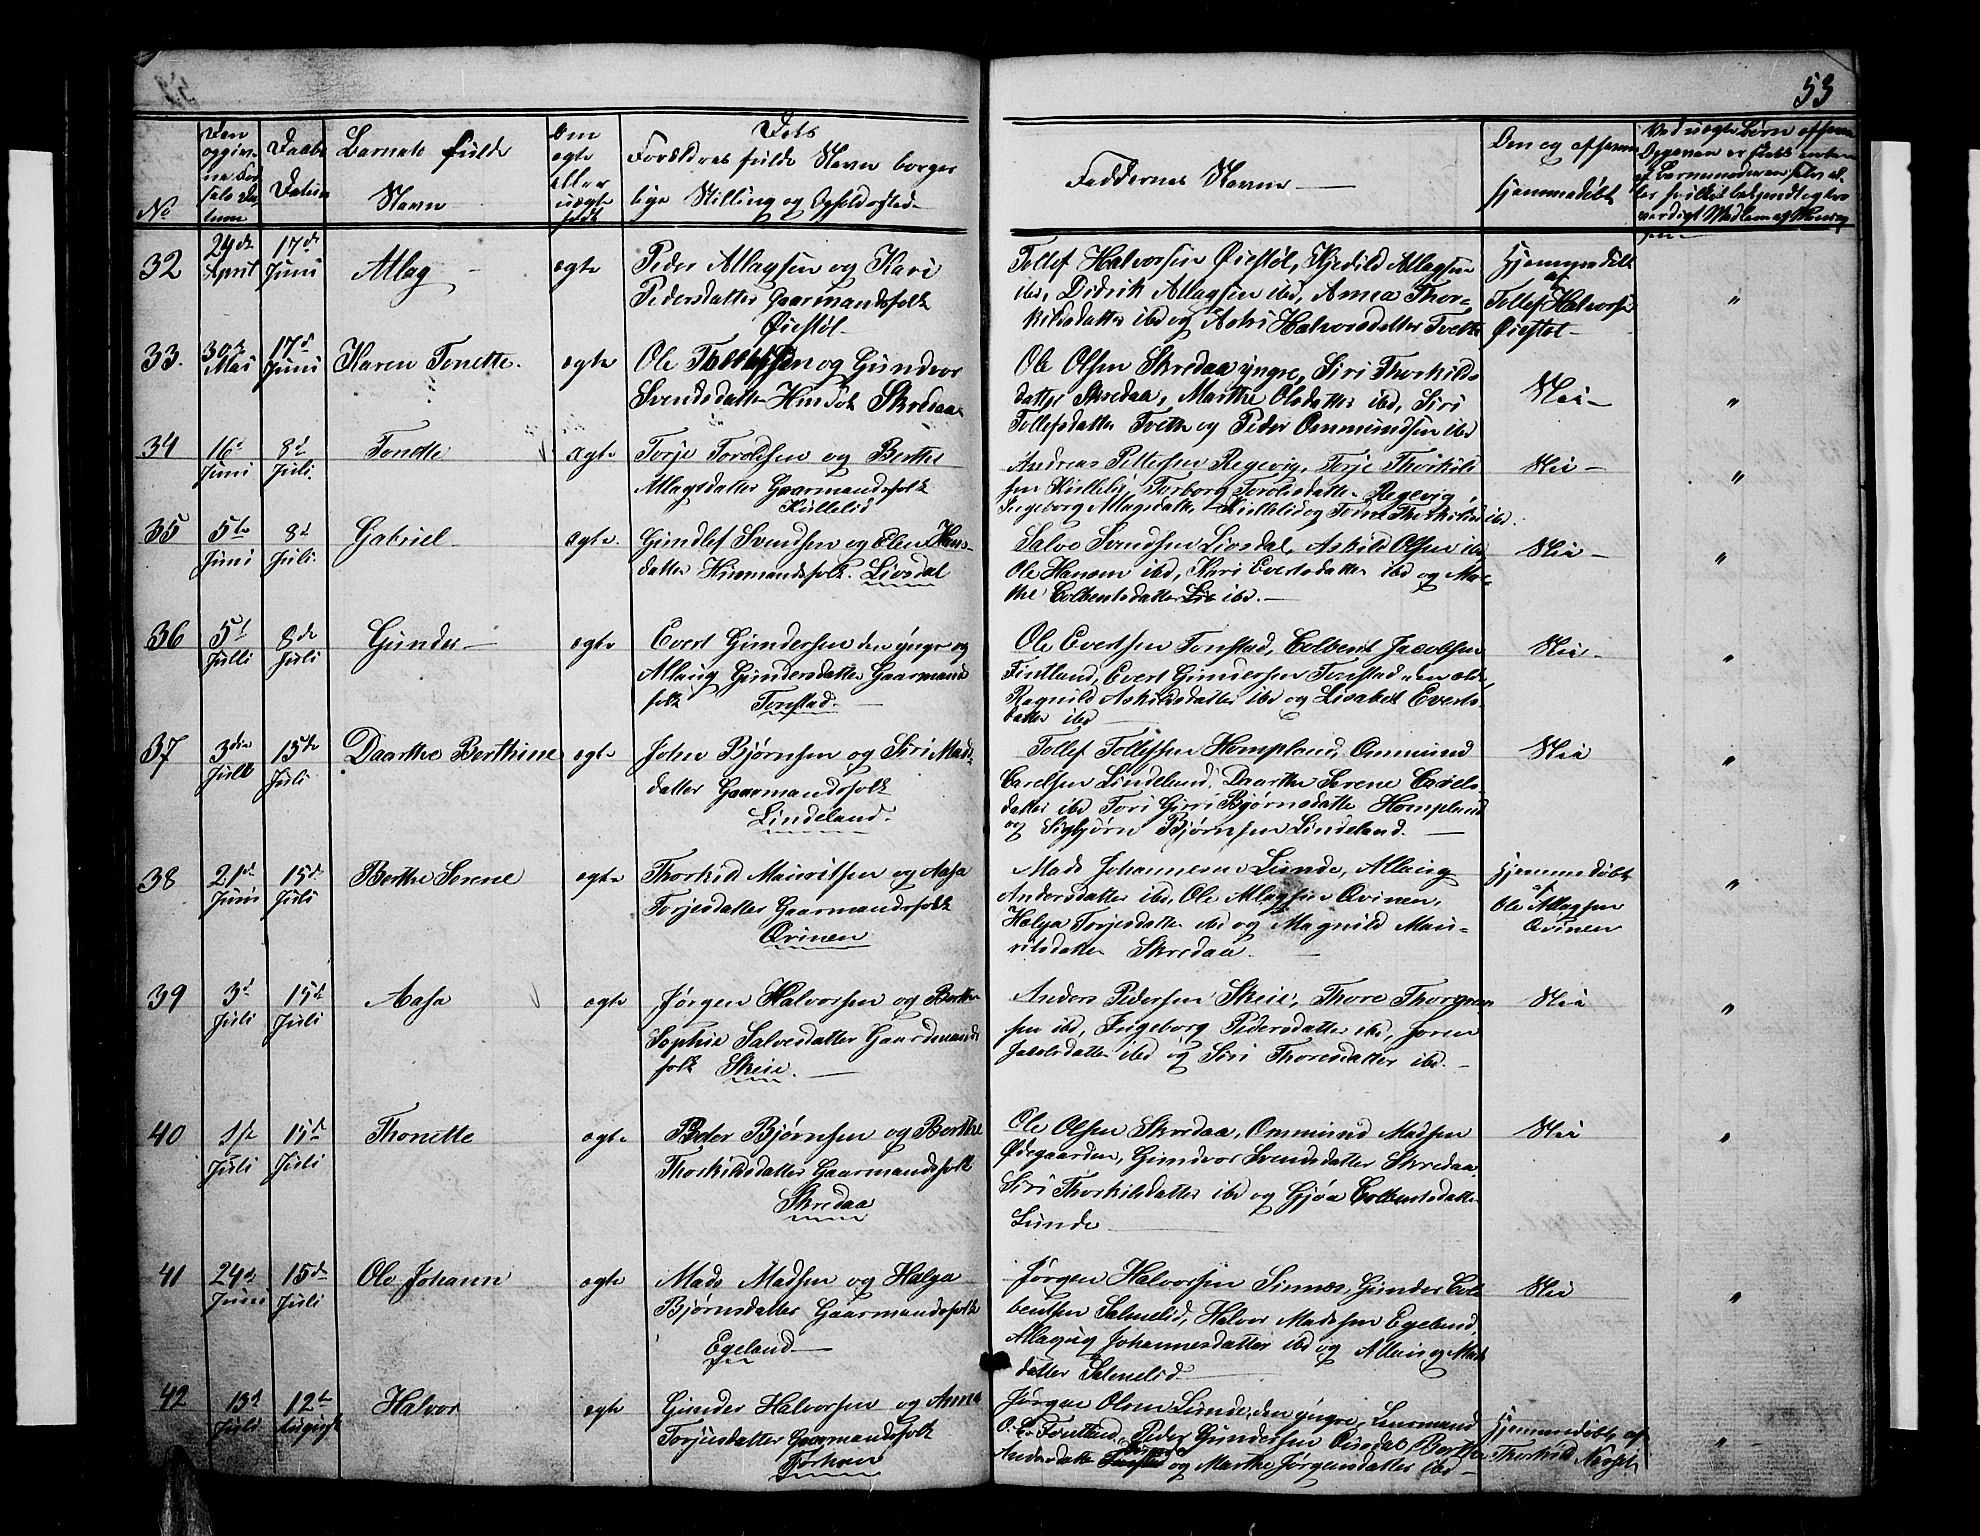 53
No
Den opgivne Fødsels Datum
Daabs Datum
Barnets fulde Navn
Om ægte eller uægte født
Dets Forældres fulde Navn borgerlige Stilling og Opholdssted
Faddernes Navne
Den og af hvem hjemmedøbt
Ved uægte Børn af hvem
32
24de April
17de Juni
Atlag
ægte
Peder Atlagsen og Kari
Pedersdatter Gaarmandsfolk
Øiestøl
Tollef Halvorsen Øiestøl, Kjedild Atlagsen
ibd, Didrik Atlagsen ibd, Anna Thor-
kildsdatter ibd og Aski Halvorsdatter Tveth
Hjemmedøbt
af
Tollef Halvorsen
Øiestøl
"
33.
30te Mai
17d Juni
Karen Tonette.
ægte
Ole Tollefsen og Gundvor
Svendsdatter Skredaa
Ole Olsen Skredaa yngre, Siri Thorkilds
datter Skredaa, Marthe Olsdatter ibd, Siri
Tollefsdatter Tveth og Peder Ommundsen ibd
Nei
"
34
16d Juni
8d Juli.
Tonette
ægte
Torje Torolsen og Berthe
Atlagsdatter Gaarmandsfolk
Kvillelid
Andreas Pettersen Regevig, Torje Thorkild
sen Kvillelid, Torborg Torolsdatter Regevig,
Ingeborg Atlagsdatter Kvillelid og ibd.
Nei
"
35
5te Juni
8d Juli.
Gabriel
ægte.
Gundlef Svendsen og Elen Hans-
datter Husmandsfolk. Liosdal
Salve Svendsen Liosdal, Askild Olsen ibd,
Ole Hansen ibd, Kari Evertsdatter ibd og Mar-
the Colbentsdatter ibd.
Nei
"
36
5t Julli
8de Juli
Gunder
ægte
Evert Gundersen den yngre og
Atlaug Gundersdatter Gaarmands
folk Tonstad.
Ole Evertsen Tonstad, Colbent Jacobsen
Fintland, Evert Gundersen Tonstad den æld,
Ragnild Askildsdatter ibd og Lisabet Everts-
datter ibd
Nei
"
37
3die Juli
15de Juli
Daarthe Berthine
ægte
John Bjørnsen og Siri Mads-
datter Gaarmandsfolk
Lindeland.
Tollef Tollefsen Hompland, Ommund
Carelsen Lindeland, Daarthe Serene Carels-
datter ibd Tori Girri Bjørnsdatter Hompland
og Sigbjørn Bjørnsen Lindeland.
Nei
"
38
21d Juni
15d Juli
Berthe Serene
ægte
Thorkild Mauritsen og Aasa
Torjesdatter Gaarmandsfolk
Qvinen
Mads Johannesen Lunde, Atlaug
Andersdatter ibd, Ole Atlagsen Qvinen,
Helga Torjesdatter ibd og Magnild Mau-
ritsdatter Skredaa.
Hjemmedøbt
af
Ole Atlagsen
Qvinen
"
39
3d Juli
15d Juli
Aasa
ægte
Jørgen Halvorsen og Berthe
Sophie Salvesdatter Gaardmands
folk Skeie.
Anders Pedersen Skeie, Thore Thorgren
sen ibd, Ingeborg Pedersdatter ibd, Joren
Jakobsdatter ibd og Siri Thoresdatter ibd.
Nei
"
40
1ste Juli
15d Juli
Thonette
ægte
Peder Bjørnsen og Berthe
Thorkildsdatter Gaarmandsfolk
Skredaa
Ole Olsen Skredaa, Ommund Madsen
Ødegaarden, Gundvor Svendsdatter Skredaa
Siri Thorkildsdatter ibd og Gjøa Colbentsdatter
Lunde
Nei
"
41
24d Juni
15de Juli
Ole Johann
ægte
Mads Madsen og Helga
Bjørnsdatter Gaarmandsfolk
Egeland
Jørgen Halvorsen Sinnes, Gunder Col-
bentsen Salmelid, Halvor Madssen Egeland
Atlaug Johannesdatter ibd og Atlaug Mads
datter Salmelid
Nei
"
42
13d Juli
12te August
Halvor
ægte
Gunder Halvorsen og Anna
Torjusdatter Gaarmandsfolk
Jørgen Olsen Lunde den yngre, Lensmand
O. E. Fintland, Peder Gundersen Ousdal, Berthe
Andersdatter og Marthe Jørgensdatter ibd
Hjemmedøbt af
Thorkild Nesset
"